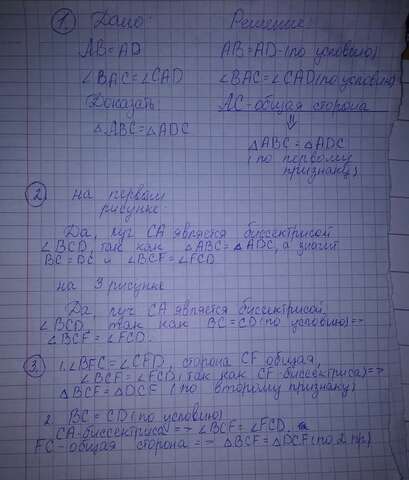 1. Дано: Решение
AB=AD AB=AD-(по условию)
∠BAC=∠CAD ∠BAC=∠CAD(по условию)
Доказать: AC-общая сторона
△ABC=△ADC ⇓
△ABC=△ADC
(по первому
признаку)
2. на первом
рисунке
Да, луч CA является биссектрисой
∠BCD, так как △ABC=△ADC, а значит
BC=DC и ∠BCF=∠FCD
на 3 рисунке
Да, луч CA является биссектрисой
∠BCD так как BC=CD(по условию)=>
∠BCF=∠FCD.
3. 1. ∠BFC=∠CFD, сторона CF общая,
∠BCF=∠FCD(так как CF-биссектриса)=>
△BCF=△DCF (по второму признаку)
2. BC=CD(по условию)
CA-биссектриса=>∠BCF=∠FCD.
FC-общая сторона=>△BCF=△DCF(по 2 пр)